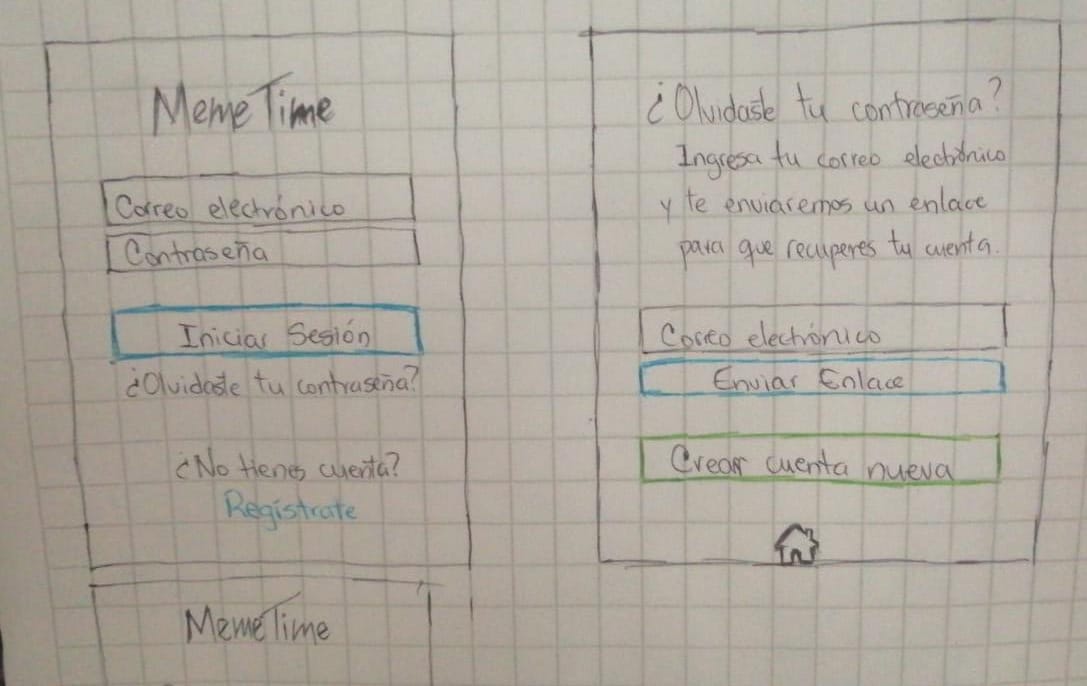 MemeTime
Correo electrónico
Contraseña
Iniciar Sesión
¿Olvidaste tu contraseña?
¿No tienes cuenta?
Regístrate
MemeTime
¿Olvidaste tu contraseña?
Ingresa tu correo electrónico
y te enviaremos un enlace
para que recuperes tu cuenta.
Correo electrónico
Enviar Enlace
Crear cuenta nueva